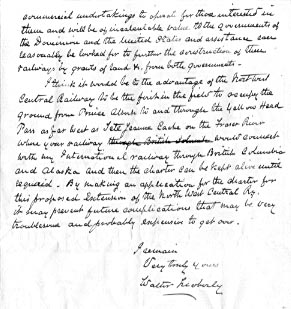 commercial undertakings to afford for those interested in
them and will be of incalculable value to the governments of
the Dominion and the United States and assistance can
reasonably be looked for to further the construction of these
railways by grants of land &c. from both governments.
I think it would be to the advantage of the North West
Central Railway to be the first in the field to occupy the
ground from Prince Albert to and through the Yellow Head
Pass as far west as Tête Jeanne Cache on the Fraser River
where your railway through British Columbia would connect
with my International railway through British Columbia
and Alaska and then the charter can be kept alive until
required. By making an application for the charter for
this proposed extension of the North West Central Ry.
it may prevent future complications that may be very
troublesome and probably expensive to get over.
I remain
Very truly yours
Walter Moberly